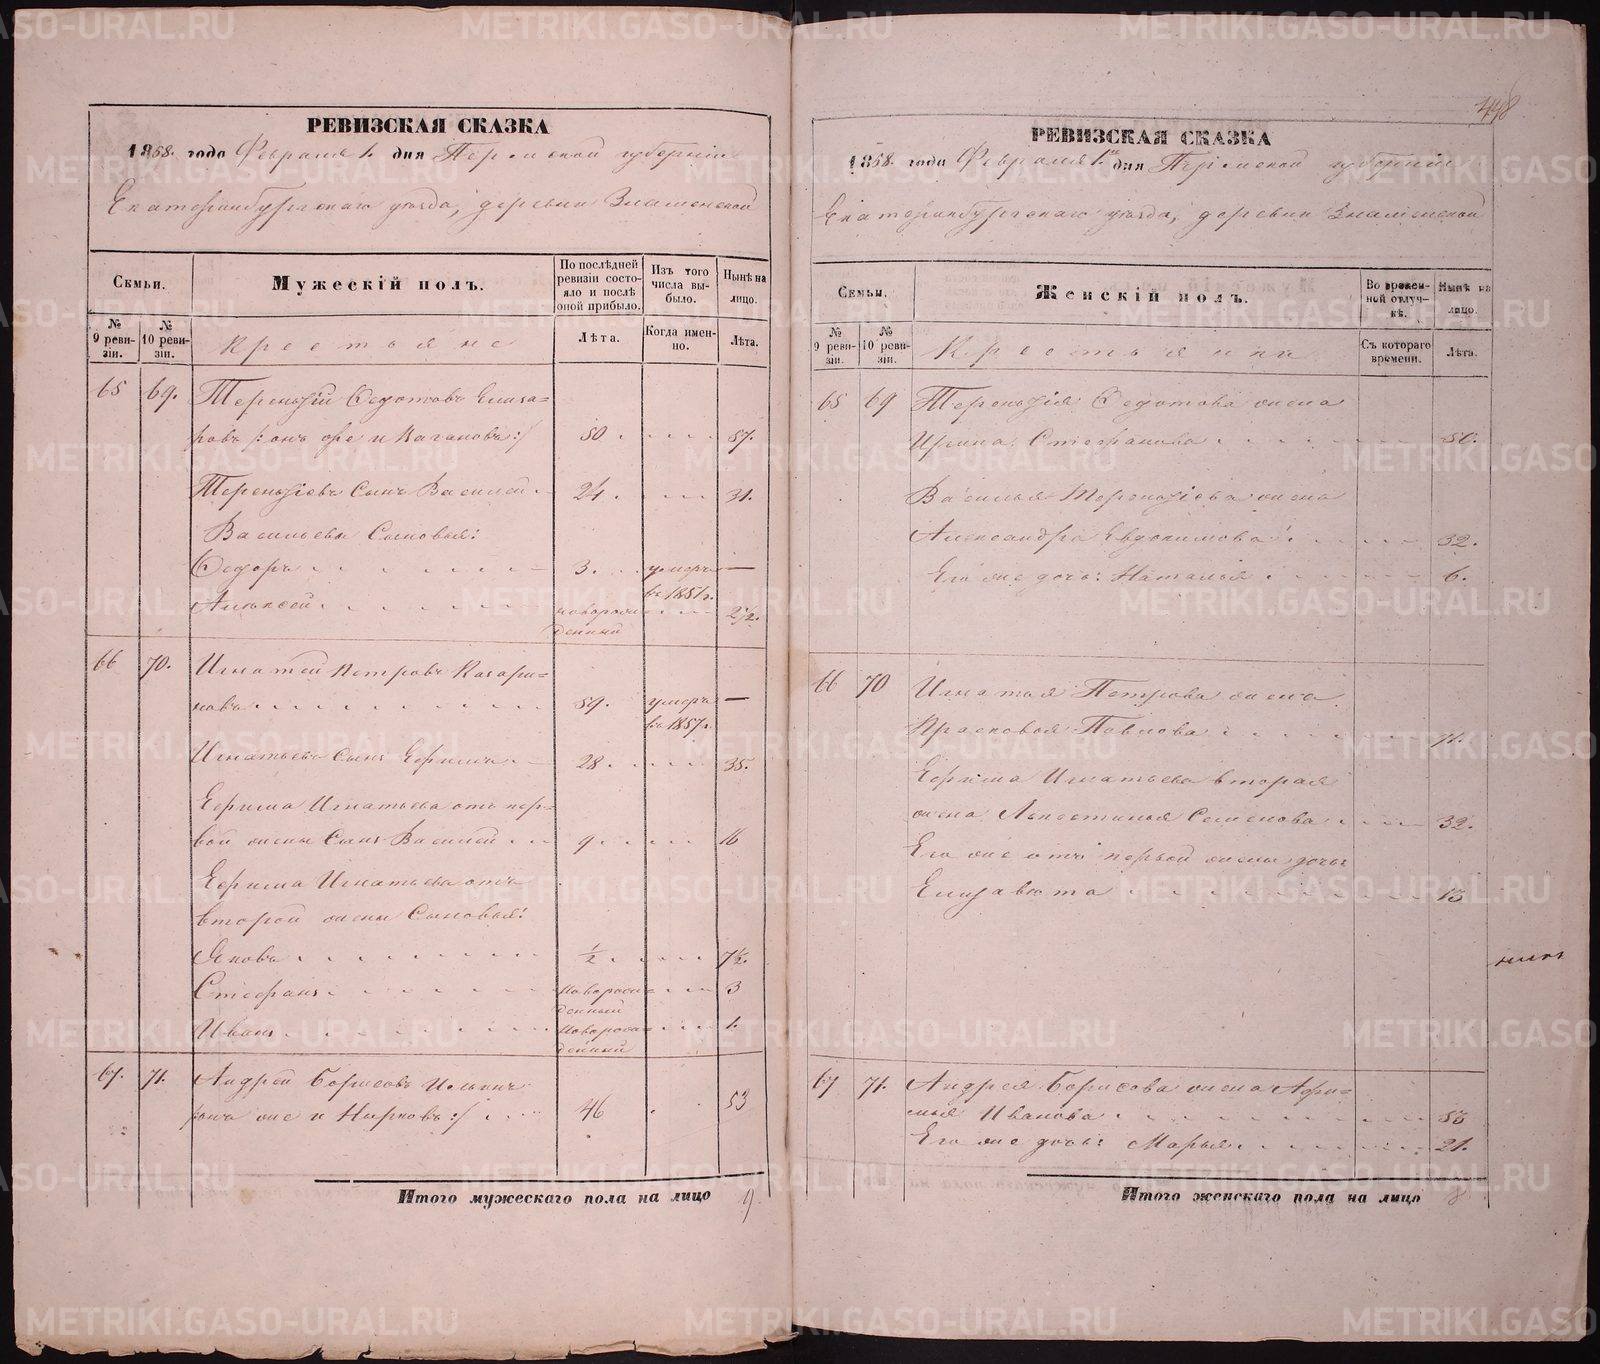 РЕВИЗСКАЯ СКАЗКА
1858. года Февраля 1. дня Пермской губерніи
Екатеринбургскаго уѣзда, деревни Знаменской
Семьи.
Мужескій полъ.
По послѣдней ревизіи состояло и послѣ оной прибыло.
Изъ того числа выбыло.
Нынѣ на лицо.
№ 9 ревизіи.
№ 10 ревизіи.
Крестьяне
Лѣта.
Когда именно.
Лѣта.
65 69. Терентій Федотовъ Елиза=
ровъ /: онъ же и Вагановъ :/ 50 57.
Терентіевъ сынъ Василей 24. 31.
Васильевы сыновья:
Федоръ 3. умеръ —
въ 1851 г.
Алексей новорож= 2½.
денный
66 70. Игнатей Петровъ Казари=
новъ 59. умеръ —
въ 1857 г.
Игнатьевъ сынъ Ефимъ 28. 35.
Ефима Игнатьева отъ пер=
вой жены сынъ Василей 9 16
Ефима Игнатьева отъ
второй жены сыновья:
Яковъ ½ 7½.
Стефанъ новорож= 3
денный
Иванъ новорож= 1.
денный
67. 71. Андрей Борисовъ Ильинъ
/: онъ же и Нырковъ :/ 46 53
Итого мужескаго пола на лицо 9.
448
РЕВИЗСКАЯ СКАЗКА
1858. года Февраля 1. дня Пермской губерніи
Екатеринбургскаго уѣзда, деревни Знаменской
Семьи.
Женскій полъ.
Во временной отлучкѣ.
Нынѣ на лицо.
№ 9 ревизіи.
№ 10 ревизіи.
Крестьянки
Съ котораго времени.
Лѣта.
65 69 Терентія Федотова жена
Ирина Стефанова 50.
Василья Терентіева жена
Александра Евдокимова 32.
Его же дочь: Наталья 6.
66 70 Игнатья Петрова жена
Прасковья Павлова 71.
Ефима Игнатьева вторая
жена Семенова 32.
Его же отъ первой жены дочь
Елизавета 13
67 71. Андрея Борисова жена Афи=
мья Иванова 53
Его же дочь: Марья 21.
Итого женскаго пола на лицо
METRIKI.GASO-URAL.RU